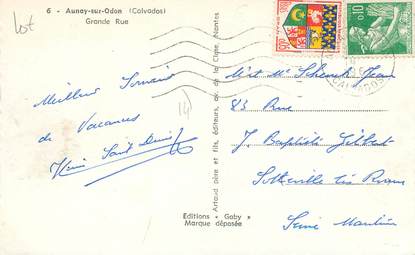 lot
6 - Aunay-sur-Odon (Calvados)
Grande Rue
Meilleur Souvenir
de Vacances
Saint Denis
14
Artaud père et fils, éditeurs, av. de la Close, Nantes
Editions « Gaby »
Marque déposée
0.10
CALVADOS
Mr et Me Schenck Jean
83 Rue
J. Baptiste Gilbert
Sotteville lès Rouen
Seine Maritime